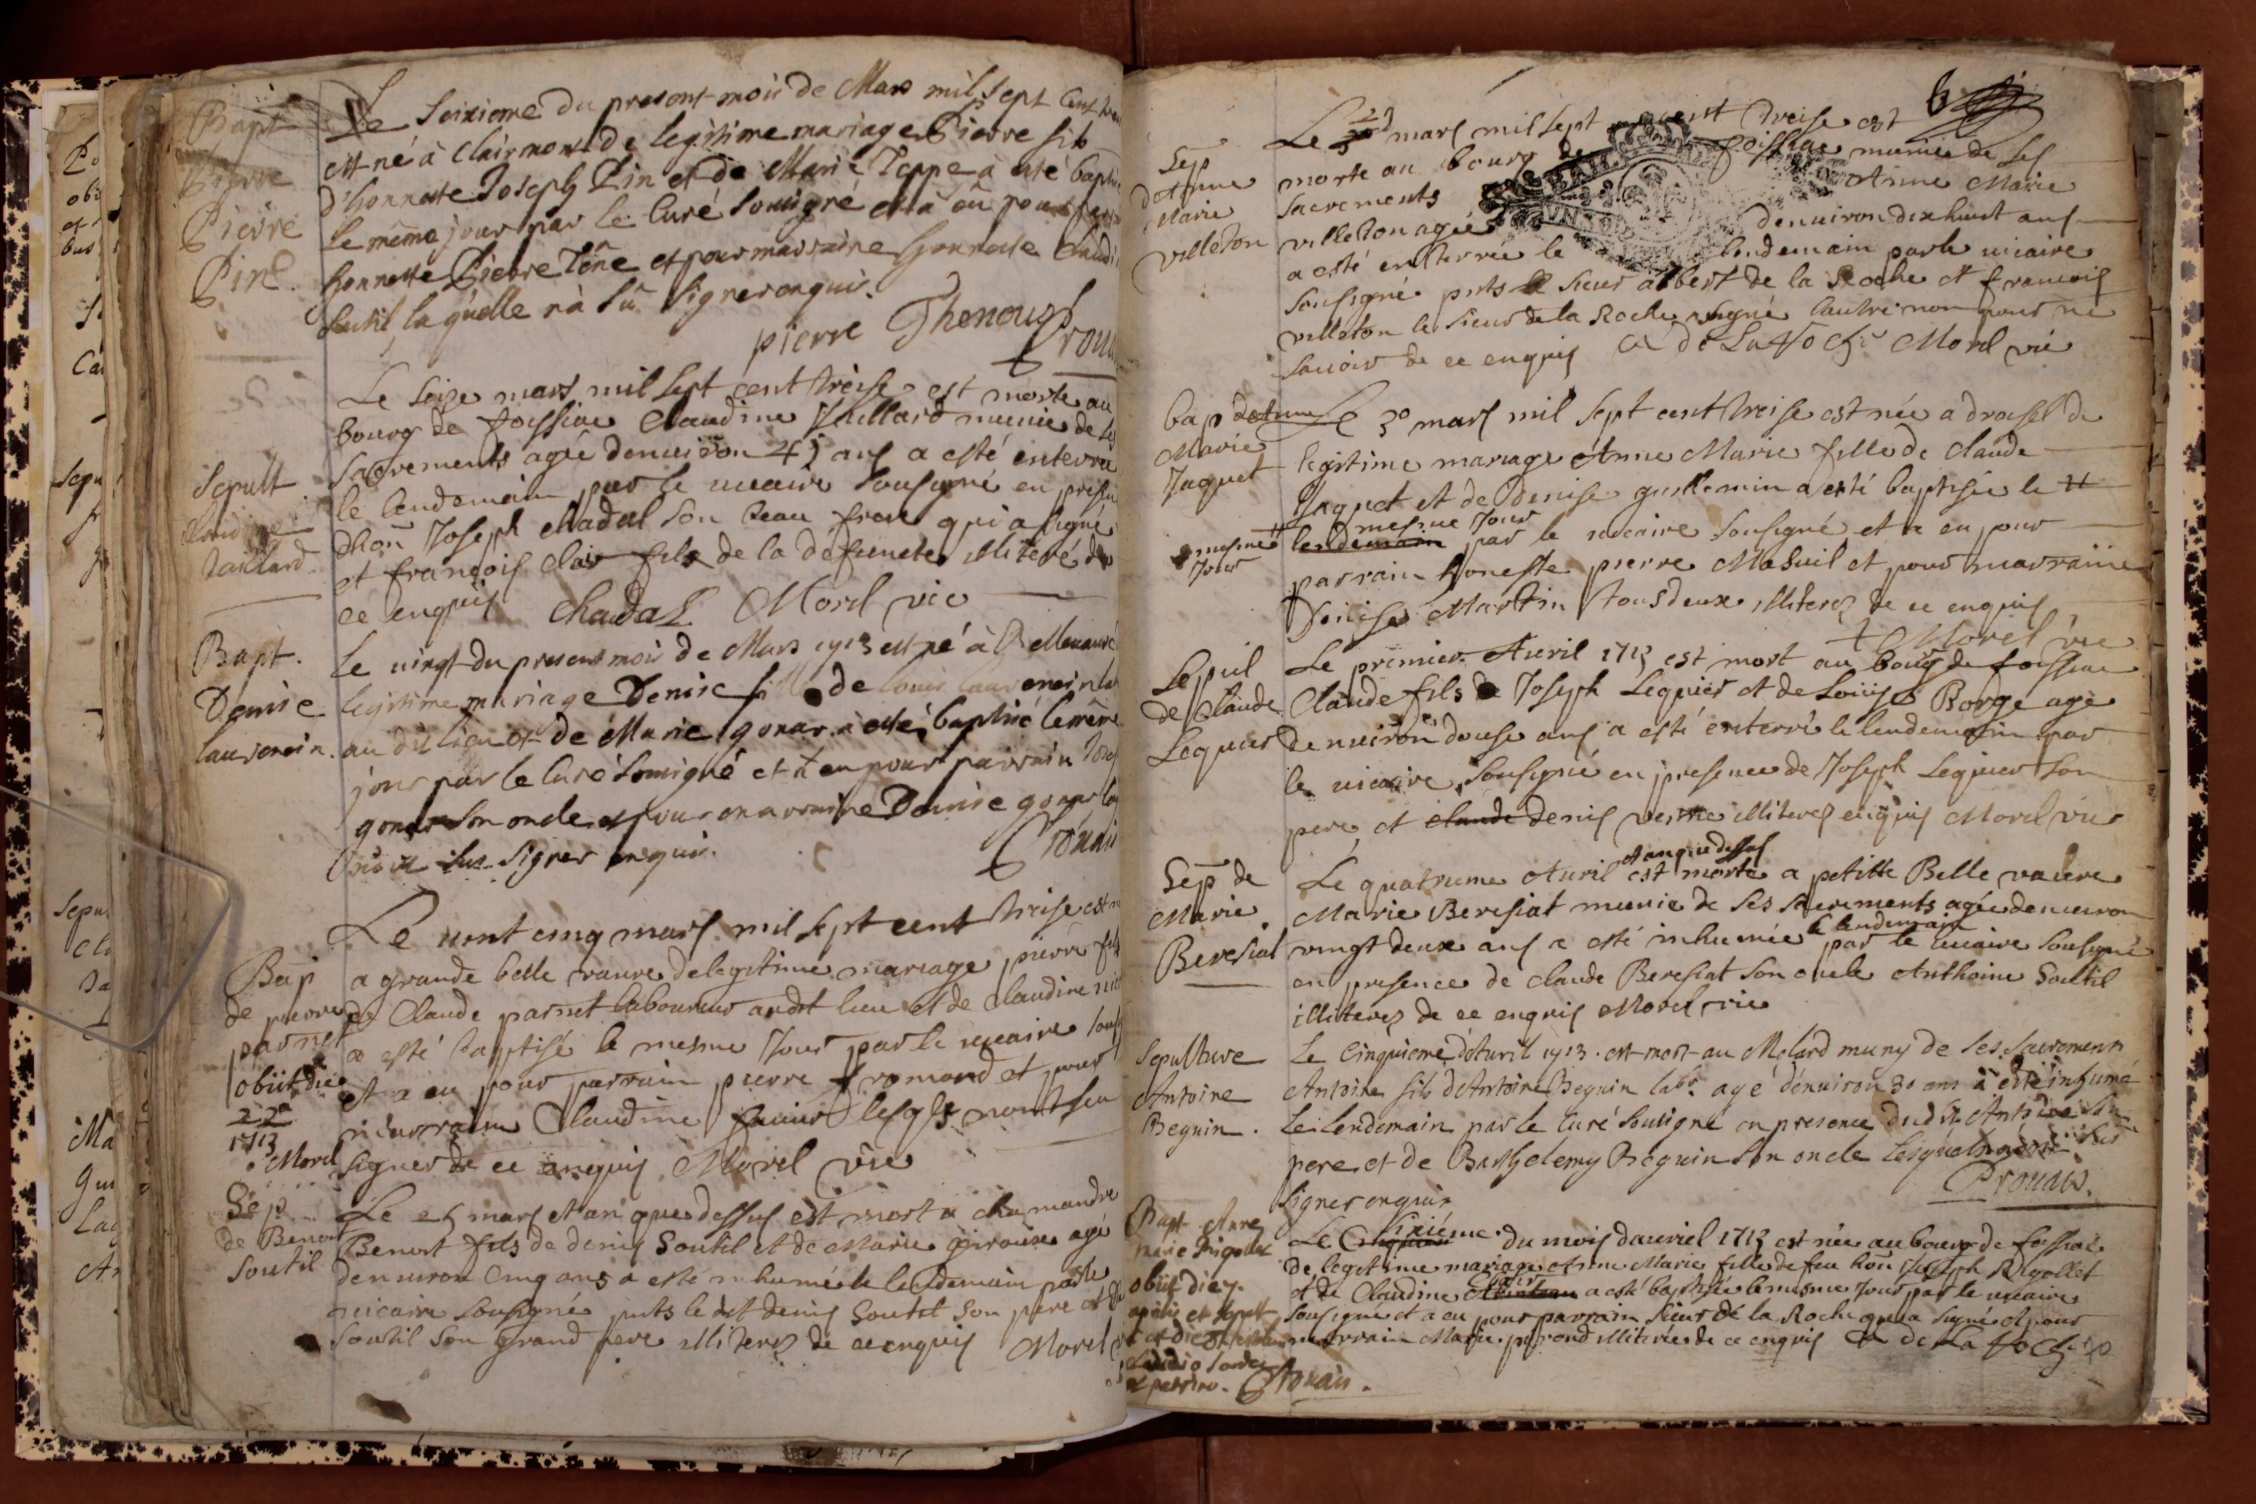 Bapt
Pierre
Pierre
Pin.
Le Seixieme du present mois de Mars mil sept Cent
est né à Clairmon de legitime mariage Pierre fils
d'honneste Joseph Pin et de Marie Teppe à eté
le même jour par le Curé soussigné et à eû pour
honneste Pierre Téne et pour marraine honneste
Soutil laquelle nà sû signer enquis.
pierre Thenoud
Sepult
Claudine
Vaillard
Le seize mars mil sept cent treise est morte au
bourg de foissiac Claudine Vuillard munie de
sacrements agée denviron 45 ans a esté enterrée
le lendemain par le vicaire sousigné en
dhon Joseph Chadal son beau frere qui a signé
et françois Clair fils de la defuncte illiteré de
ce enquis Chadal Morel vic
Bapt.
Denise
laurencin.
Le vingt du present mois de Mars 1713 est né à
legitime mariage Denise fille de louis laurencin
au dit lieu et de Marie gonar à esté baptisé le même
jour par le Curé sousigné et à eu pour parrain
gonar son oncle et pour marraine Denise gonar
signer enquis.
Bap
de pierre
parnet
obiit die
22
1713
Morel
Le vint cinq mars mil sept cent treise est
a grande belle vavre de legitime mariage pierre fils
de Claude parnet laboureur audt lieu et de Claudine
a esté baptisé le mesme Jour par le vicaire
et a eu pour parrain pierre fromond et pour
marraine Claudine lesqls nont sceu
signer de ce enquis Morel vic
Sep
de Benoit
Soutil
Le 25 mars et an que dessus est mort a chamandre
Benoit fils de denis Soutil et de Marie giroux agé
denviron Cinq ans a esté inhumé le lendemain par le
vicaire sousigné pnts le dt denis Soutil son pere et
Soutil son grand pere illiterez de ce enquis Morel
Sep
d'Anne
Marie
villeton
Le mars mil sept cent treise est
morte au bourg de foissiac munie de ses
sacrements Anne Marie
villeton agée denviron dixhuit ans
a esté enterrée le lendemain par le vicaire
sousigné pnts Sieur albert de la Roche et francois
villeton le Sieur de la Roche signé lautre non pour ne
savoir de ce enquis A de La Roche Morel vic
bap danne
Marie
Jaquet
mesme
Jour
Le 30 mars mil sept cent treise est née a drousel de
legitime mariage Anne Marie fille de Claude
Jaquet et de Denise guillemin a esté baptisée le
mesme Jour
lendemain par le vicaire sousigné et a eu pour
parrain honeste pierre Masuil et pour marraine
Denise Martin tous deux illiterez de ce enquis
Morel vic
Sepul
de Claude
Lequier
Le premier Avril 1713 est mort au bourg de foissiac
Claude fils de Joseph Lequier et de Loüise Borge agé
denviron douse ans a esté enterré le lendemain par
le vicaire sousigné en presence de Joseph Lequier son
pere et claude denis illiterez enquis Morel vic
Sep de
Marie
Beresiat
et an que dessus
Le quatrieme Avril est morte a petitte Belle vavere
Marie Beresiat munie de ses sacrements agée denviron
le lendemain
vingt deux ans a esté inhumée par le vicaire sousigné
en presence de claude Beresiat son oncle Anthoine Soutil
illiterez de ce enquis Morel vic
Sepulture
Antoine
Beguin.
Le Cinquieme d'Avril 1713 est mort au Molard muny de ses sacrements
Antoine fils d'Antoine Beguin labr. agé denviron 30 ans à esté inhumé
Le lendemain par le Curé sousigné en presence dudit Antoine son
pere et de Barthelemy Beguin son oncle lesquels
signer enquis
Prouais.
Bapt Anne
marie Rigollet
obiit die 7.
aprilis et sepult
Prouais.
sixieme
Le Cinquieme du mois davriel 1713 est née au bourg de foissiac
de legitime mariage Anne Marie fille de feu hon Joseph Rigollet
Clair
et de Claudine a esté baptisée le mesme Jour par le vicaire
sousigné et a eu pour parrain sieur de la Roche qui a signé et pour
marraine Marie illiterée de ce enquis A de La Roche